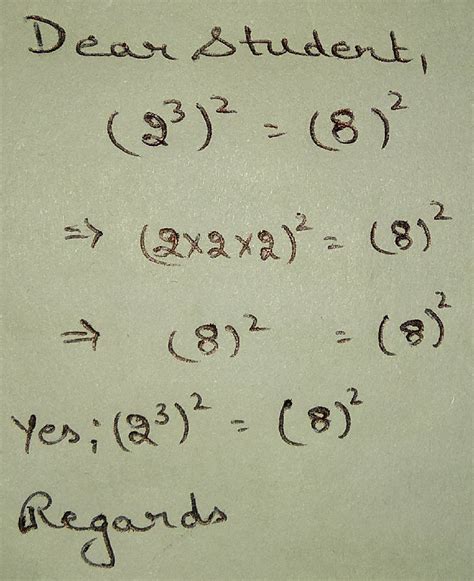 Dear Student,
(2³)² = (8)²
⇒ (2×2×2)² = (8)²
⇒ (8)² = (8)²
Yes; (2³)² = (8)²
Regards